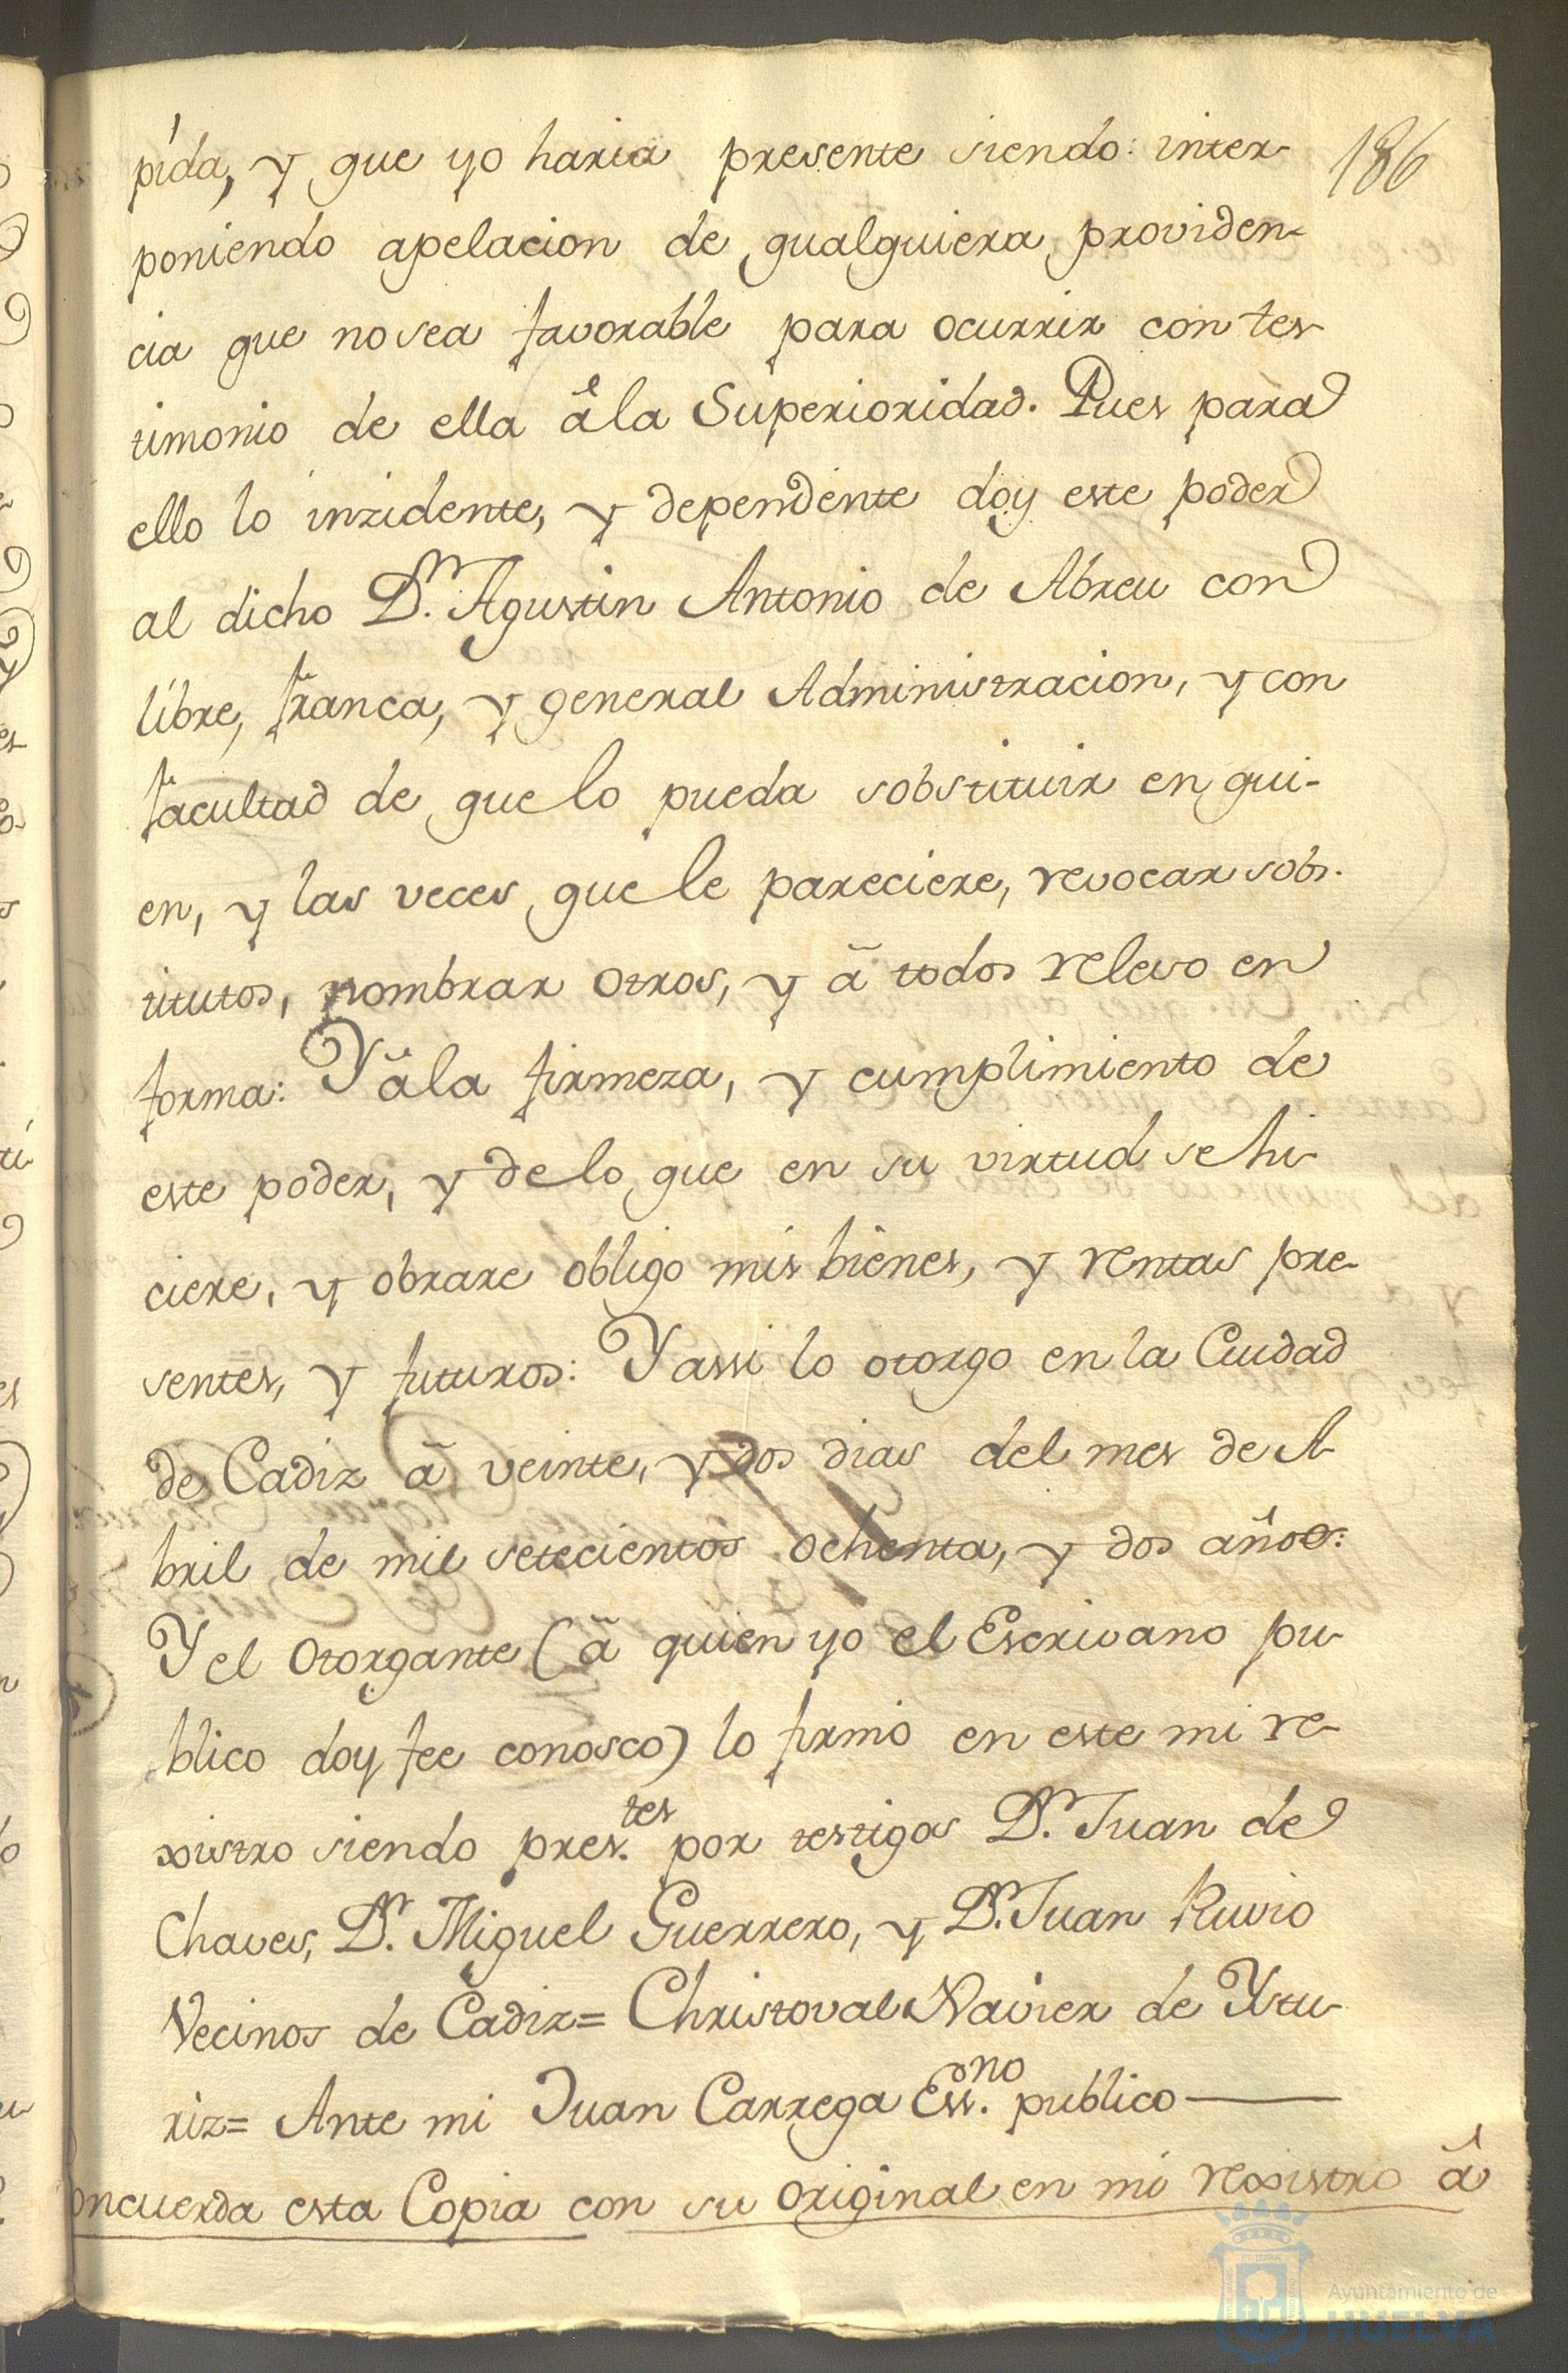 pida, y que yo haria presente siendo: inter-
186
poniendo apelacion de qualquiera providen-
cia que no sea favorable para ocurrir con tes-
timonio de ella â la Superioridad. Pues para
ello lo inzidente, y dependente doy este poder
al dicho D.ⁿ Agustin Antonio de Abreu con
libre, franca, y general Administracion, y con
facultad de que lo pueda sobstituir en qui-
en, y las veces que le pareciere, revocar sobs-
titutos, nombrar otros, y â todos relevo en
forma: Y â la firmeza, y cumplimiento de
este poder, y de lo que en su virtud se hi-
ciere, y obrare obligo mis bienes, y rentas pre-
sentes, y futuros: Y assi lo otorgo en la Ciudad
de Cadiz â veinte, y dos dias del mes de A-
bril de mil setecientos ochenta, y dos años:
Y el Otorgante (â quien yo el Escrivano pu-
blico doy fee conosco) lo firmó en este mi re-
xistro siendo pres.tes por testigos D.ⁿ Juan de
Chaves, D.ⁿ Miguel Guerrero, y D.ⁿ Juan Ruvio
Vecinos de Cadiz= Christoval Xavier de Ystu-
riz= Ante mi Juan Carrega Ess.no publico
oncuerda esta Copia con su original en mi rexistro â
Ayuntamiento de
HUELVA